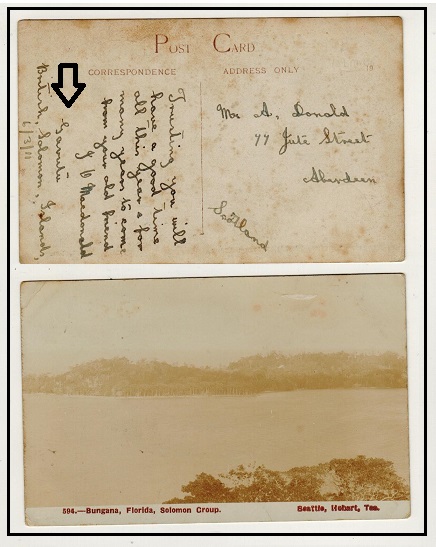 POST CARD
CORRESPONDENCE
ADDRESS ONLY
Trusting you will
have a good time
all this year & for
many years to come
from your old friend
J O Macdonald
Gavutu
British Solomon Islands,
6/3/11
Mr A, Donald
77 Jute Street
Aberdeen
Scotland
594.—Bungana, Florida, Solomon Group.
Beattie, Hobart, Tas.